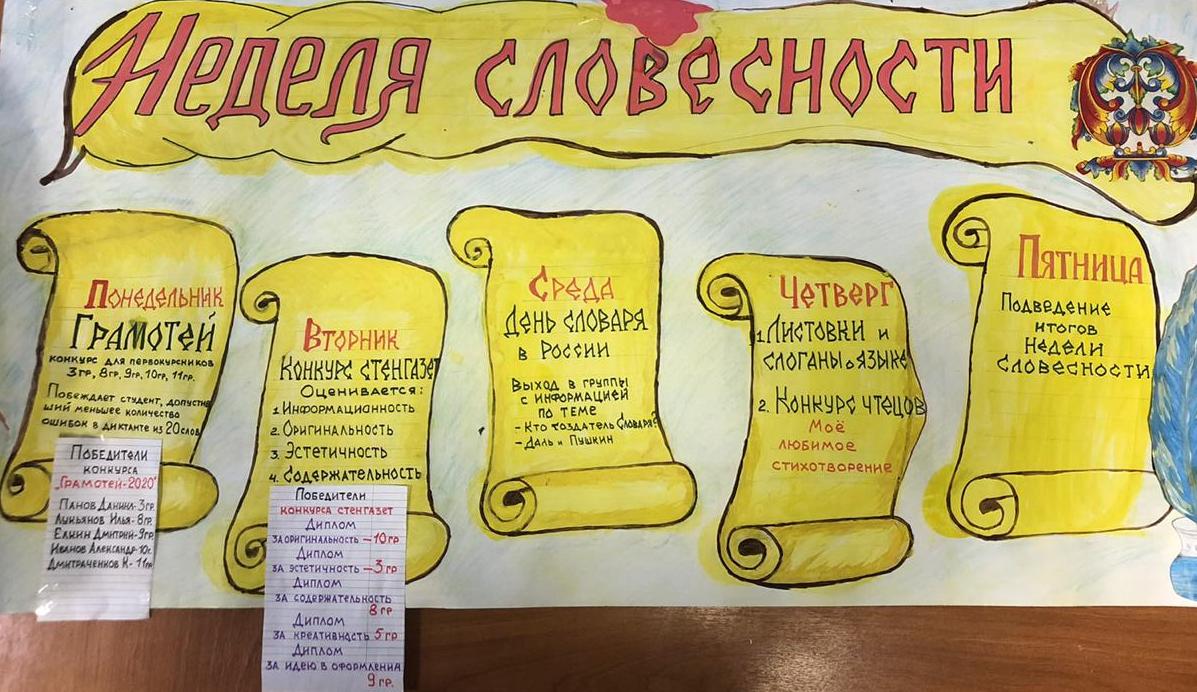 Неделя словесности
Понедельник
Грамотей
конкурс для первокурсников
3гр, 8гр, 9гр, 10гр, 11гр.
Побеждает студент, допустив
ший меньшее количество
ошибок в диктанте из 20 слов
Победители
конкурса
"Грамотей-2020"
Панов Данил- 3гр.
Лукьянов Илья- 8гр.
Елкин Дмитрий- 9гр.
Иванов Александр- 10г.
Дмитраченков К- 11гр.
Вторник
Конкурс стенгазет
Оценивается:
1. Информационность
2. Оригинальность
3. Эстетичность
4. Содержательность
Победители
конкурса стенгазет
Диплом
за оригинальность – 10гр
Диплом
за эстетичность – 3 гр
Диплом
за содержательность
8 гр
Диплом
за креативность 5 гр
Диплом
за идею в оформлении
9 гр.
Среда
День словаря
в России
Выход в группы
с информацией
по теме
- Кто создатель Словаря?
- Даль и Пушкин
Четверг
1. Листовки и
слоганы о языке
2. Конкурс чтецов
Моё
любимое
стихотворение
Пятница
Подведение
итогов
Недели
Словесности